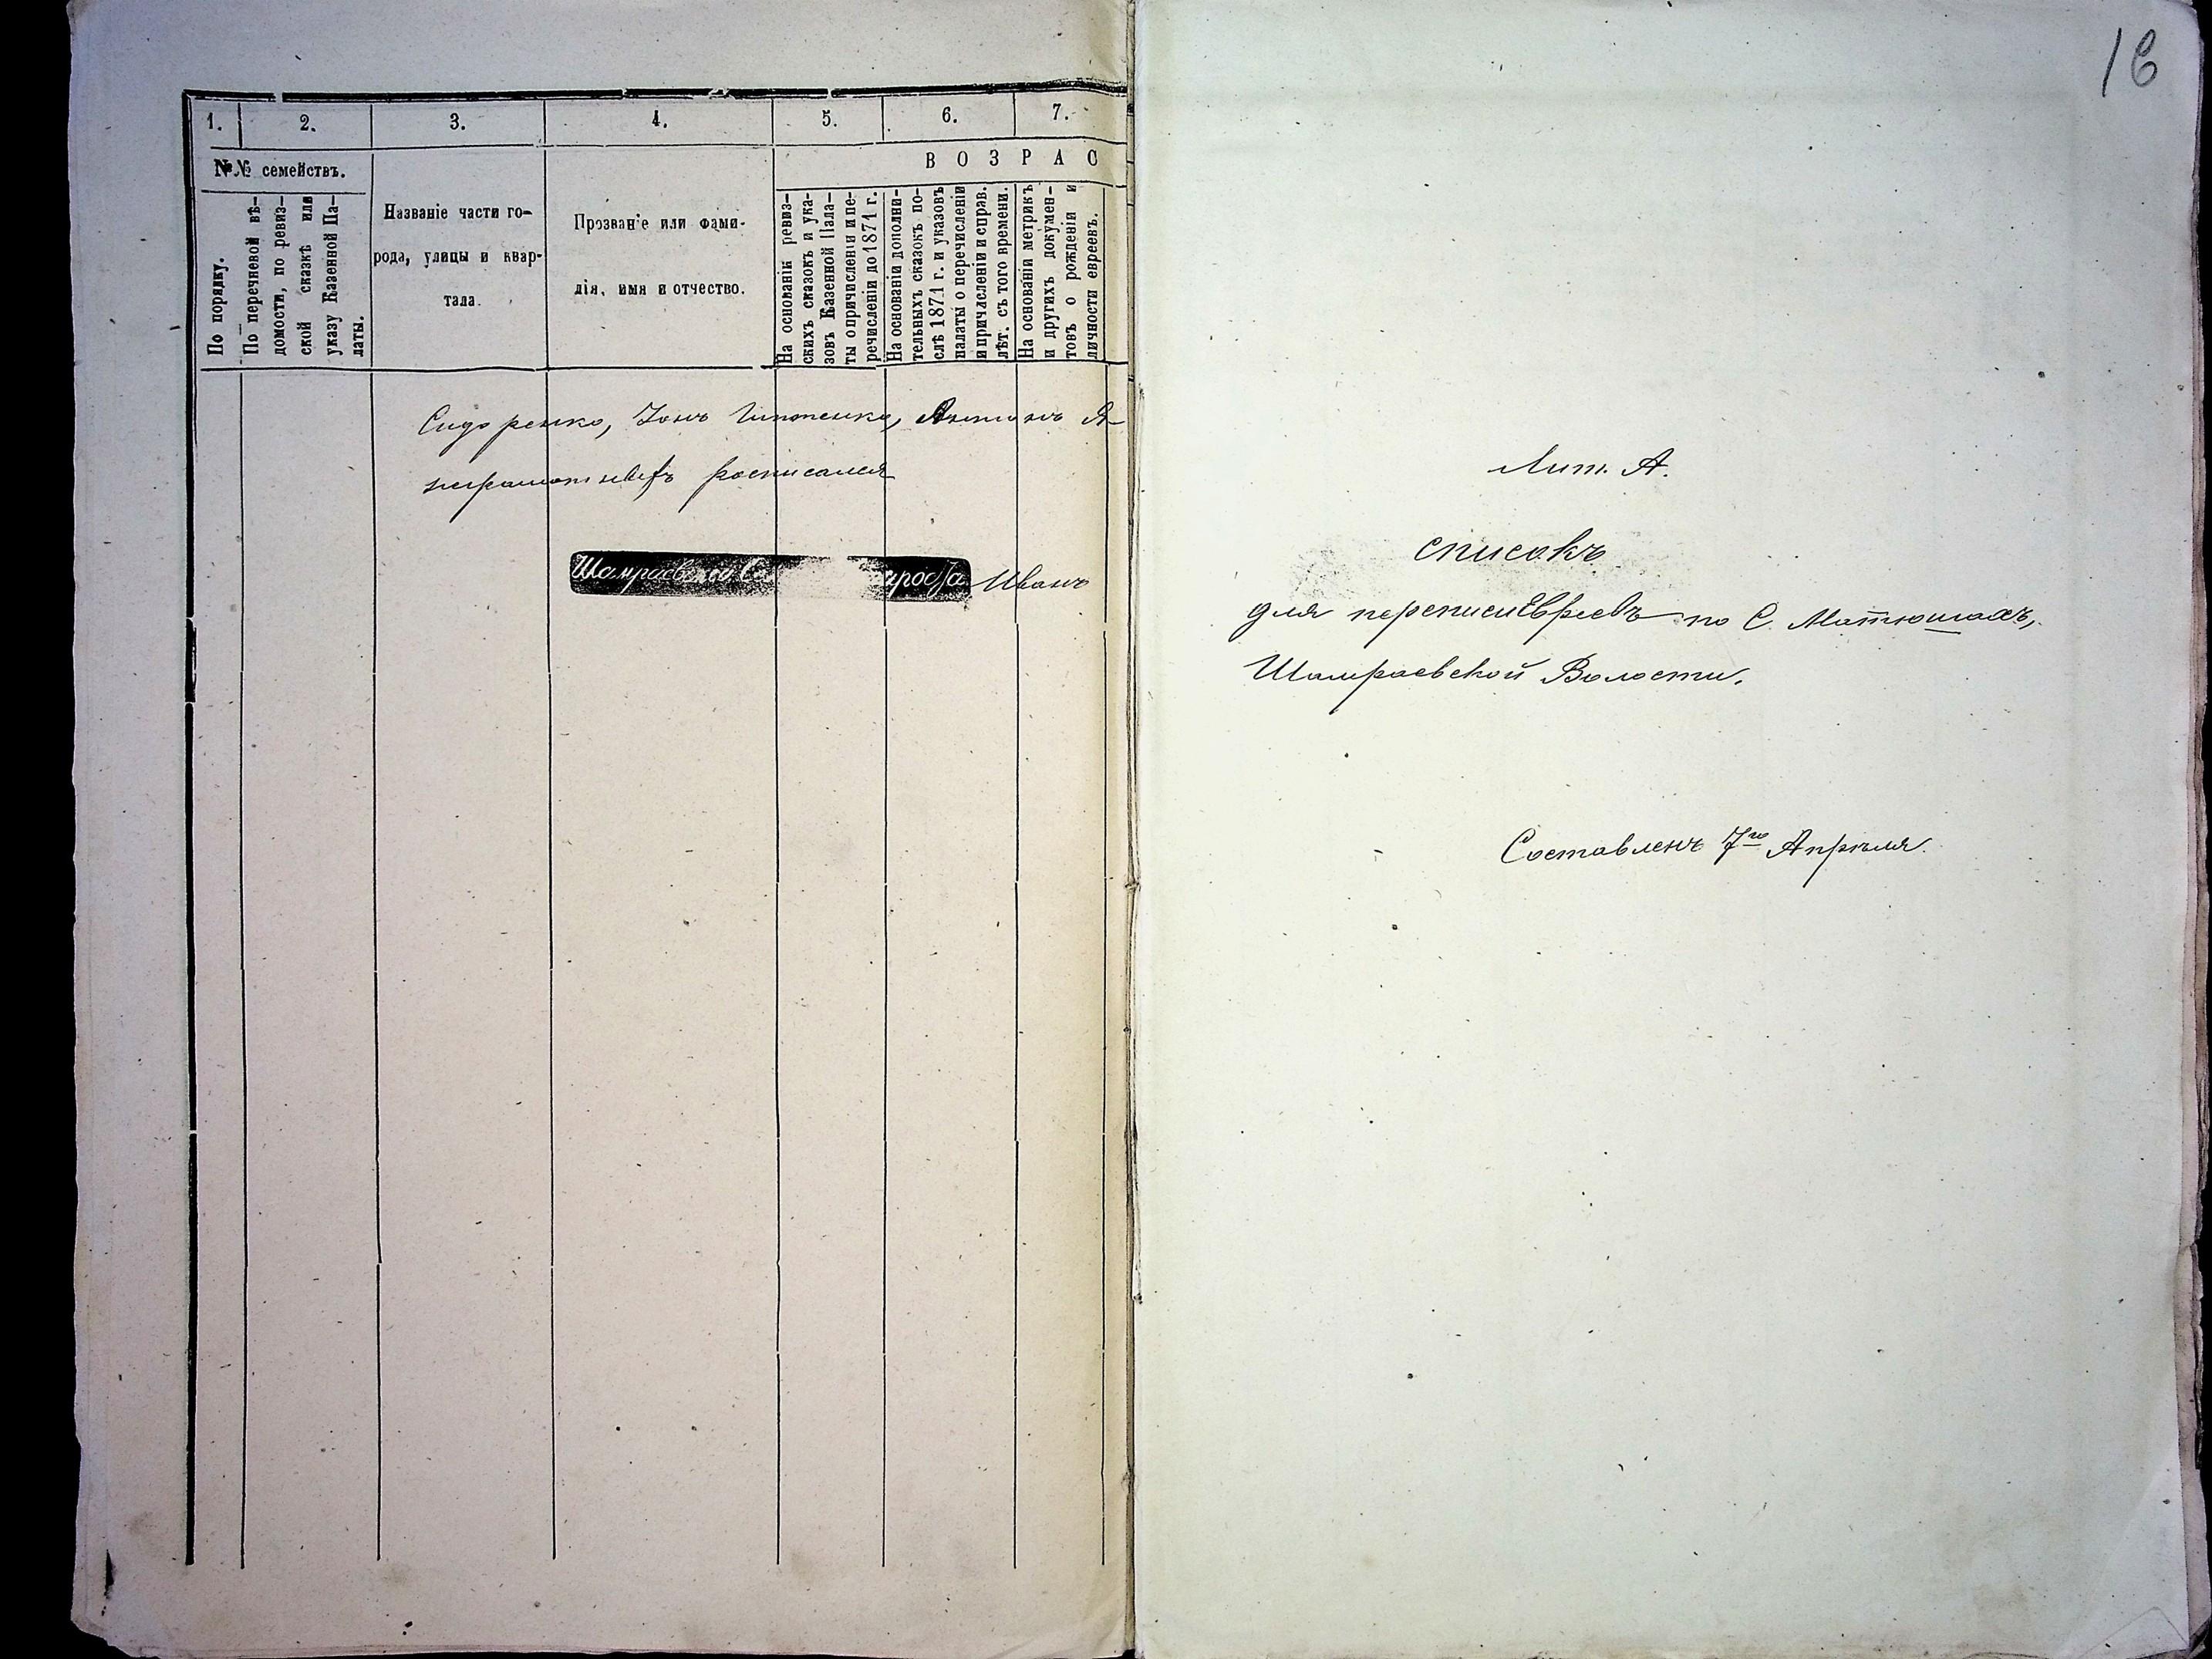 1. 2. 3. 4. 5. 6. 7.
№№ семействъ.
ВОЗРАС
По порядку.
По перечневой вѣ-
домости, по ревиз-
ской сказкѣ или
указу Казенной Па-
латы.
Названіе части го-
рода, улицы и квар-
тала.
Прозваніе или фами-
лія, имя и отчество.
На основаніи ревиз-
скихъ сказокъ и ука-
зовъ Казенной Пала-
ты о причисленіи и пе-
речисленіи до 1871 г.
На основаніи дополни-
тельныхъ сказокъ по-
слѣ 1871 г. и указовъ
палаты о перечисленіи
и причисленіи и справ.
лѣт. съ того времени.
На основаніи метрикъ
и другихъ докумен-
товъ о рожденіи и
личности евреевъ.
Сидоренко, Антонъ А-
неграмотныхъ росписался
Шамраевскаго Иванъ
16
Лит. А.
списокъ
для переписи Евреевъ по С. Матюшахъ,
Шамраевской Волости.
Составленъ 7го Апрѣля.